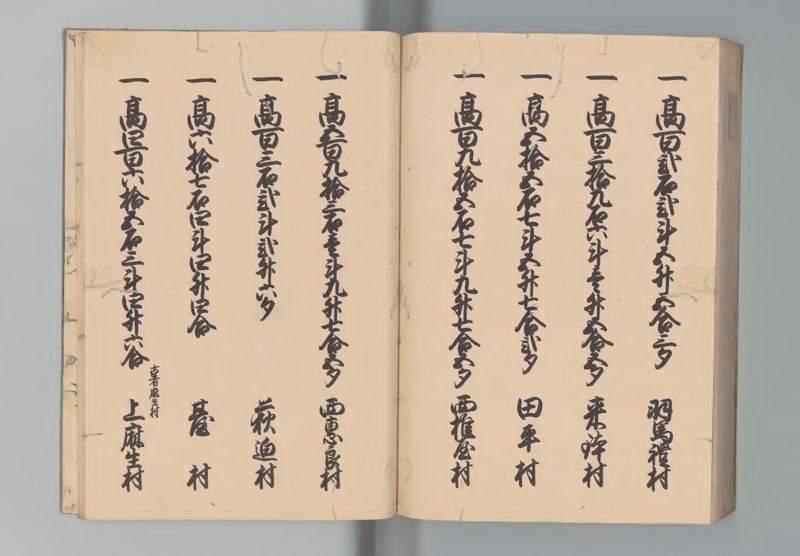 一 高百弐石弐斗五升五合三夕 羽馬礼村
一 高百三拾九石六斗壱升五合五夕 来鉢村
一 高五拾五石七斗五升七合弐夕 田平村
一 高百九拾五石七斗九升七合五夕 西椎屋村
一 高五百九拾三石壱斗九升七合五夕 西恵良村
一 高百三石弐斗弐升六夕 萩迫村
一 高六拾七石四斗四升四合 䑓村
一 高四百六拾五石三斗四升六合 古者麻生村 上麻生村